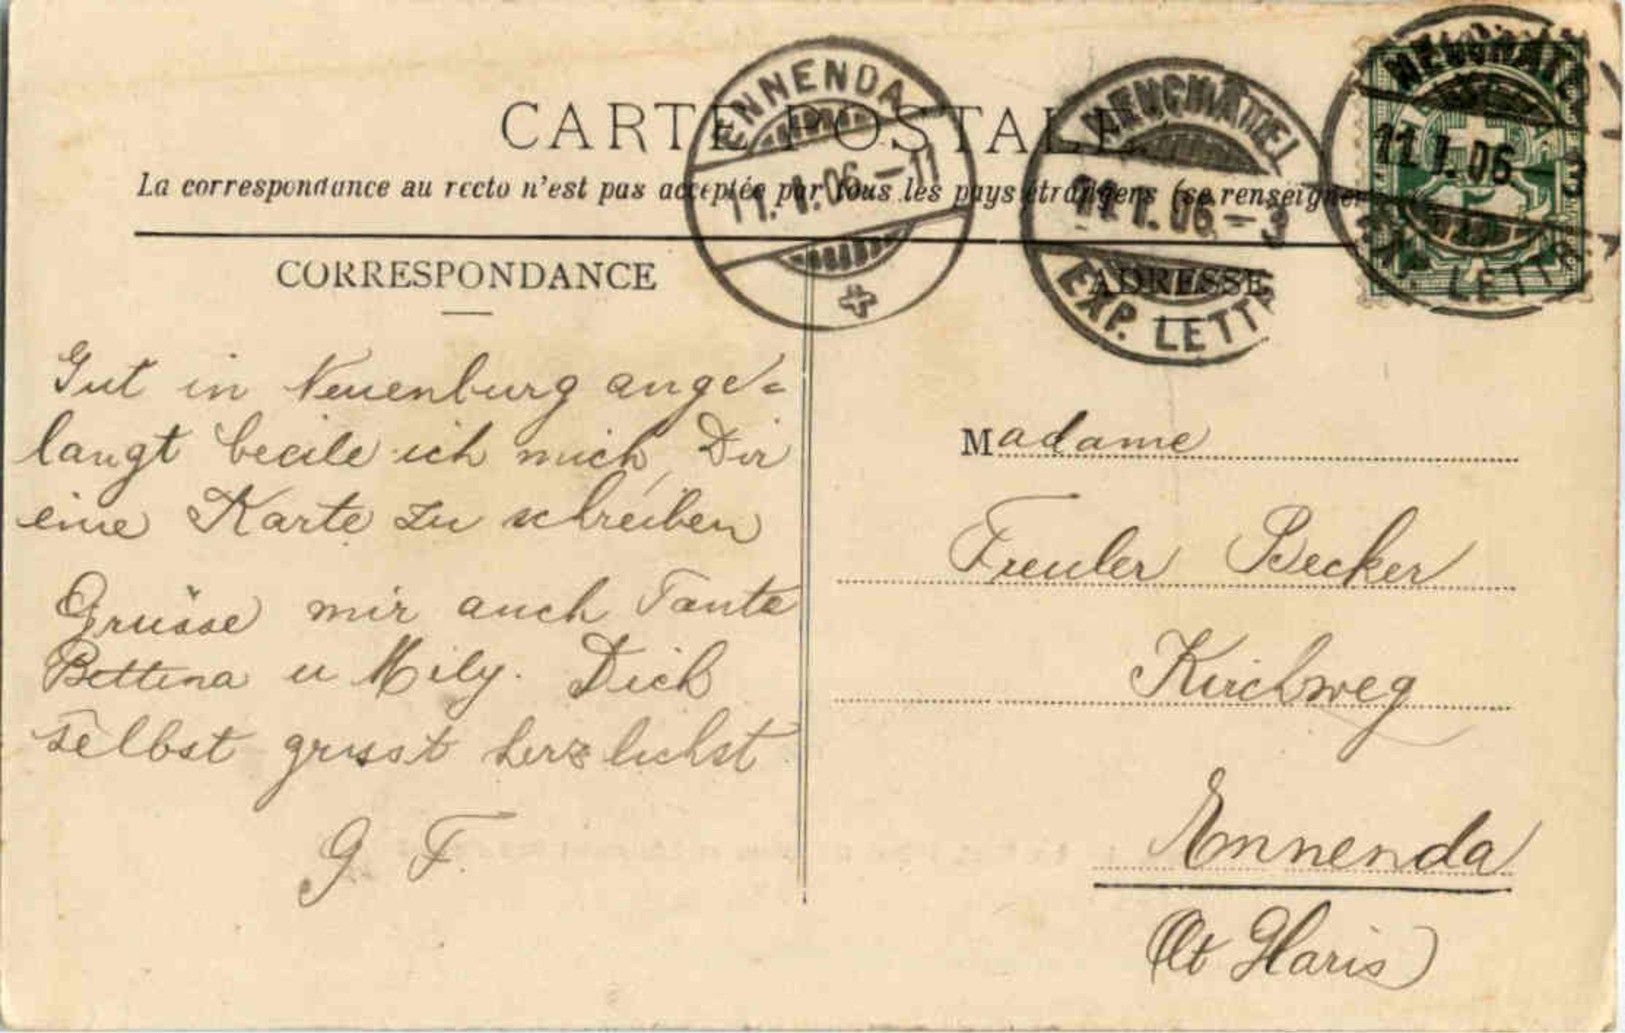 CARTE POSTALE
La correspondance au recto n'est pas acceptée par tous les pays étrangers (se renseigner
ENNENDA
11.I.06-11
NEUCHÂTEL
11.I.06-3
EXP. LETTR
NEUCHÂTEL
11.I.06-3
EXP. LETTR
CORRESPONDANCE
ADRESSE
Gut in Neuenburg ange=
langt beeile ich mich, Dir
eine Karte zu schreiben
Grüsse mir auch Tante
Bettina u Mily. Dich
selbst grüsst herzlichst
G F.
Madame
Freuler Becker
Kirchweg
Ennenda
(Ct Glaris)